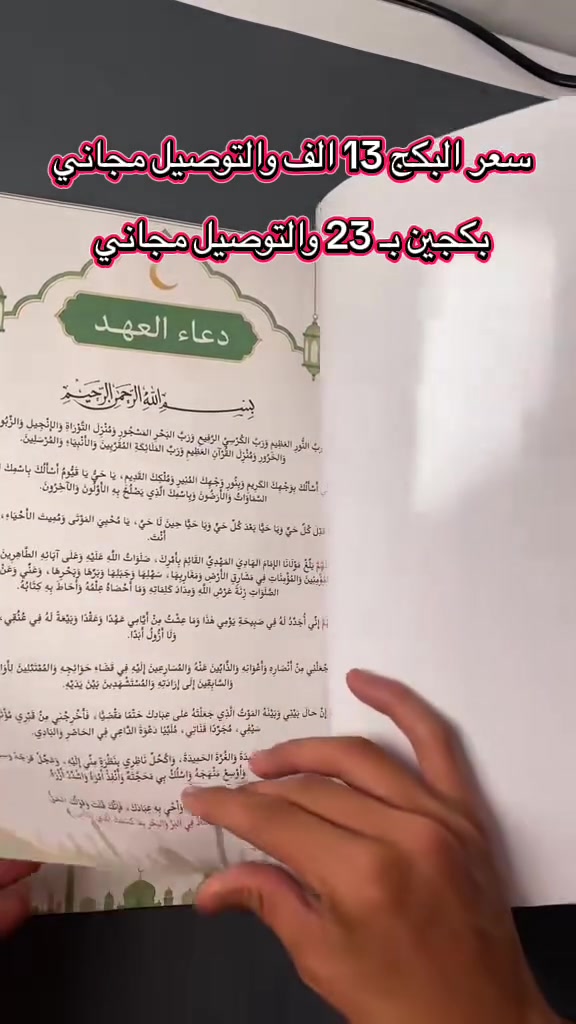 سعر البكج 13 الف والتوصيل مجاني
بكجين بـ 23 والتوصيل مجاني
دعاء العهد
بسم الله الرحمن الرحيم
النُّورِ الْعَظِيمِ وَرَبَّ الْكُرْسِيِّ الرَّفِيعِ وَرَبَّ الْبَحْرِ الْمَسْجُورِ وَمُنْزِلَ التَّوْرَاةِ وَالْإِنْجِيلِ
وَالْحَرُورِ وَمُنْزِلَ الْقُرْآنِ الْعَظِيمِ وَرَبَّ الْمَلَائِكَةِ الْمُقَرَّبِينَ وَالْأَنْبِيَاءِ وَالْمُرْسَلِينَ
بِوَجْهِكَ الْكَرِيمِ وَبِنُورِ وَجْهِكَ الْمُنِيرِ وَمُلْكِكَ الْقَدِيمِ، يَا حَيُّ يَا قَيُّومُ أَسْأَلُكَ
السَّمَاوَاتُ وَالْأَرَضُونَ وَبِاسْمِكَ الَّذِي يَصْلَحُ بِهِ الْأَوَّلُونَ وَالْآخِرُونَ
كُلِّ حَيٍّ وَيَا حَيًّا بَعْدَ كُلِّ حَيٍّ وَيَا حَيًّا حِينَ لَا حَيَّ، يَا مُحْيِيَ الْمَوْتَى وَمُمِيتَ الْأَحْيَاءِ
أَنْتَ
مَوْلَانَا الْإِمَامَ الْهَادِيَ الْمَهْدِيَّ الْقَائِمَ بِأَمْرِكَ، صَلَوَاتُ اللَّهِ عَلَيْهِ وَعَلَى آبَائِهِ الطَّاهِرِينَ
وَالْمُؤْمِنَاتِ فِي مَشَارِقِ الْأَرْضِ وَمَغَارِبِهَا، سَهْلِهَا وَجَبَلِهَا وَبَرِّهَا وَبَحْرِهَا، وَعَنِّي
الصَّلَوَاتِ زِنَةَ عَرْشِ اللَّهِ وَمِدَادَ كَلِمَاتِهِ وَمَا أَحْصَاهُ عِلْمُهُ وَأَحَاطَ بِهِ كِتَابُهُ
إِنِّي أُجَدِّدُ لَهُ فِي صَبِيحَةِ يَوْمِي هَذَا وَمَا عِشْتُ مِنْ أَيَّامِي عَهْدًا وَعَقْدًا وَبَيْعَةً لَهُ فِي عُنُقِي
وَلَا أَزُولُ أَبَدًا
مِنْ أَنْصَارِهِ وَأَعْوَانِهِ وَالذَّابِّينَ عَنْهُ وَالْمُسَارِعِينَ إِلَيْهِ فِي قَضَاءِ حَوَائِجِهِ وَالْمُمْتَثِلِينَ
وَالسَّابِقِينَ إِلَى إِرَادَتِهِ وَالْمُسْتَشْهَدِينَ بَيْنَ يَدَيْهِ
إِنْ حَالَ بَيْنِي وَبَيْنَهُ الْمَوْتُ الَّذِي جَعَلْتَهُ عَلَى عِبَادِكَ حَتْمًا مَقْضِيًّا، فَأَخْرِجْنِي مِنْ قَبْرِي
سَيْفِي، مُجَرِّدًا قَنَاتِي، مُلَبِّيًا دَعْوَةَ الدَّاعِي فِي الْحَاضِرِ وَالْبَادِي
وَالْغُرَّةَ الْحَمِيدَةَ، وَاكْحُلْ نَاظِرِي بِنَظْرَةٍ مِنِّي إِلَيْهِ، وَعَجِّلْ